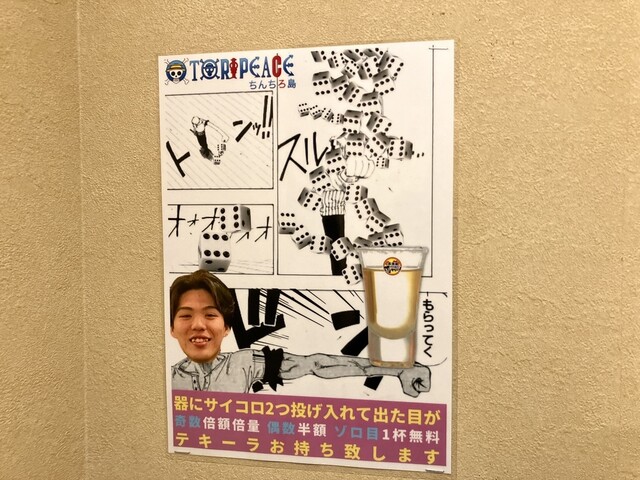 TORIPEACE
ちんちろ島
ンッ!!
ト
スル
オォオ
オォオ
ドン
もらってく
器にサイコロ2つ投げ入れて出た目が
奇数倍額倍量 偶数半額 ゾロ目1杯無料
テキーラお持ち致します